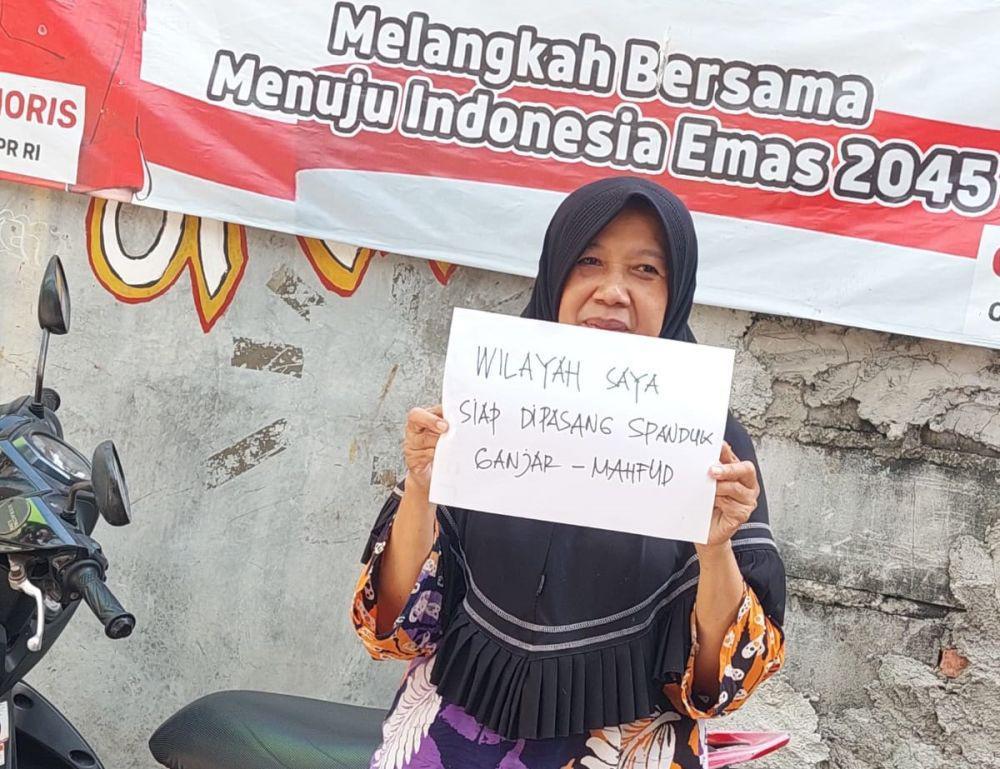 Melangkah Bersama
Menuju Indonesia Emas 2045
JORIS
PR RI
WILAYAH SAYA
SIAP DIPASANG SPANDUK
GANJAR - MAHFUD